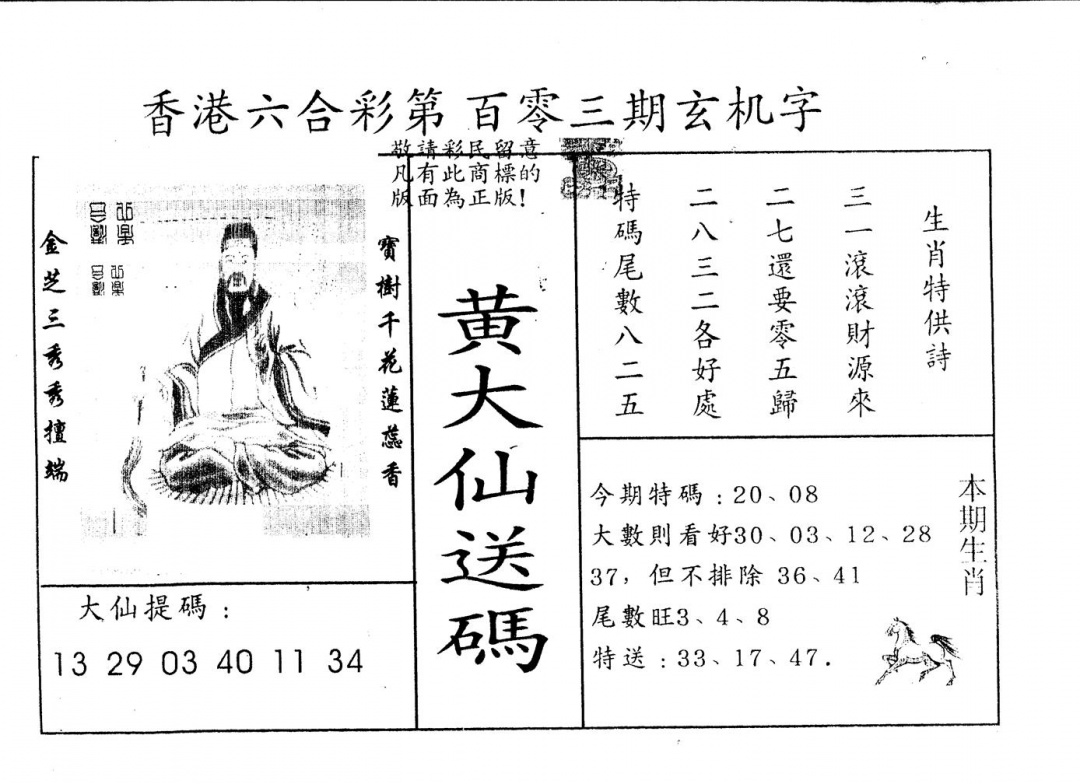 香港六合彩第 百零三期玄机字
敬請彩民留意
凡有此商標的
版面為正版!
金芝三秀秀擅端
寶樹千花蓮蕊香
大仙提碼:
13 29 03 40 11 34
黄大仙送碼
生肖特供詩
三一滾滾財源來
二七還要零五歸
二八三二各好處
特碼尾數八二五
本期生肖
今期特碼:20、08
大數則看好30、03、12、28
37，但不排除 36、41
尾數旺3、4、8
特送:33、17、47.